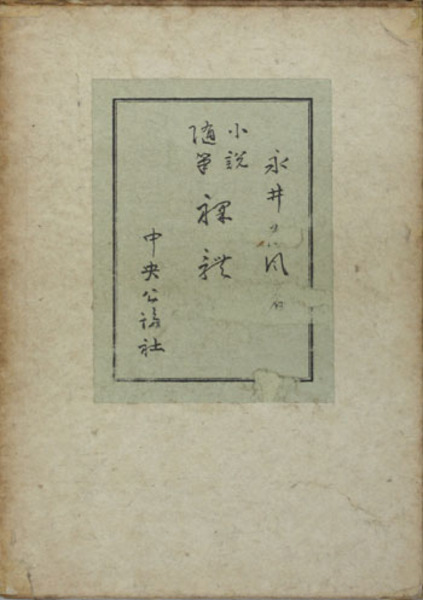 永井荷風著
小説
随筆
裸体
中央公論社